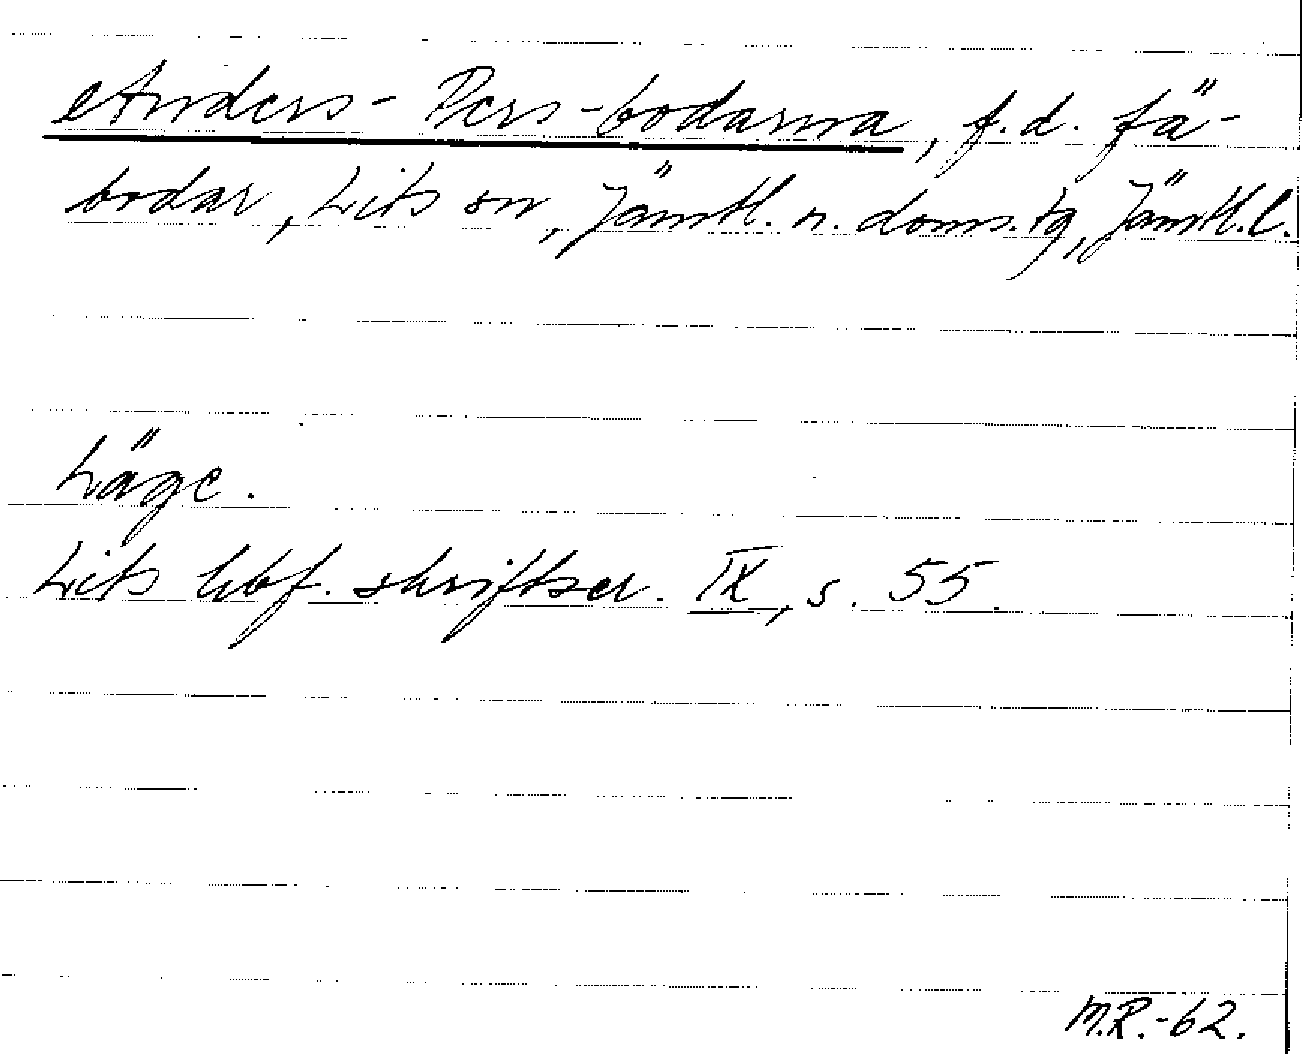 Anders-Pers-bodarna, f.d. fä-
bodar, Lits sn, Jämtl. n. doms.tg, Jämtl.l.
Läge.
Lits hbf. skriftser. IX, s. 55.
M.R.-62.